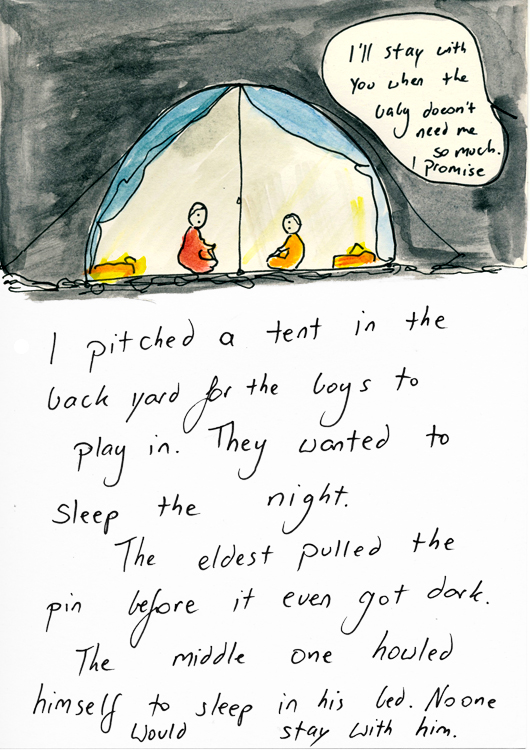 I'll stay with
You when the
baby doesn't
need me
so much.
I Promise
I pitched a tent in the
back yard for the boys to
play in. They wanted to
sleep the night.
The eldest pulled the
pin before it even got dark.
The middle one howled
himself to sleep in his bed. No one
would stay with him.